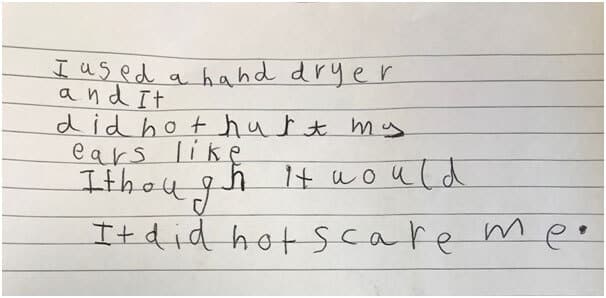 I used a hand dryer
and It
did not hurt my
ears like
I though It would
It did not scare me.